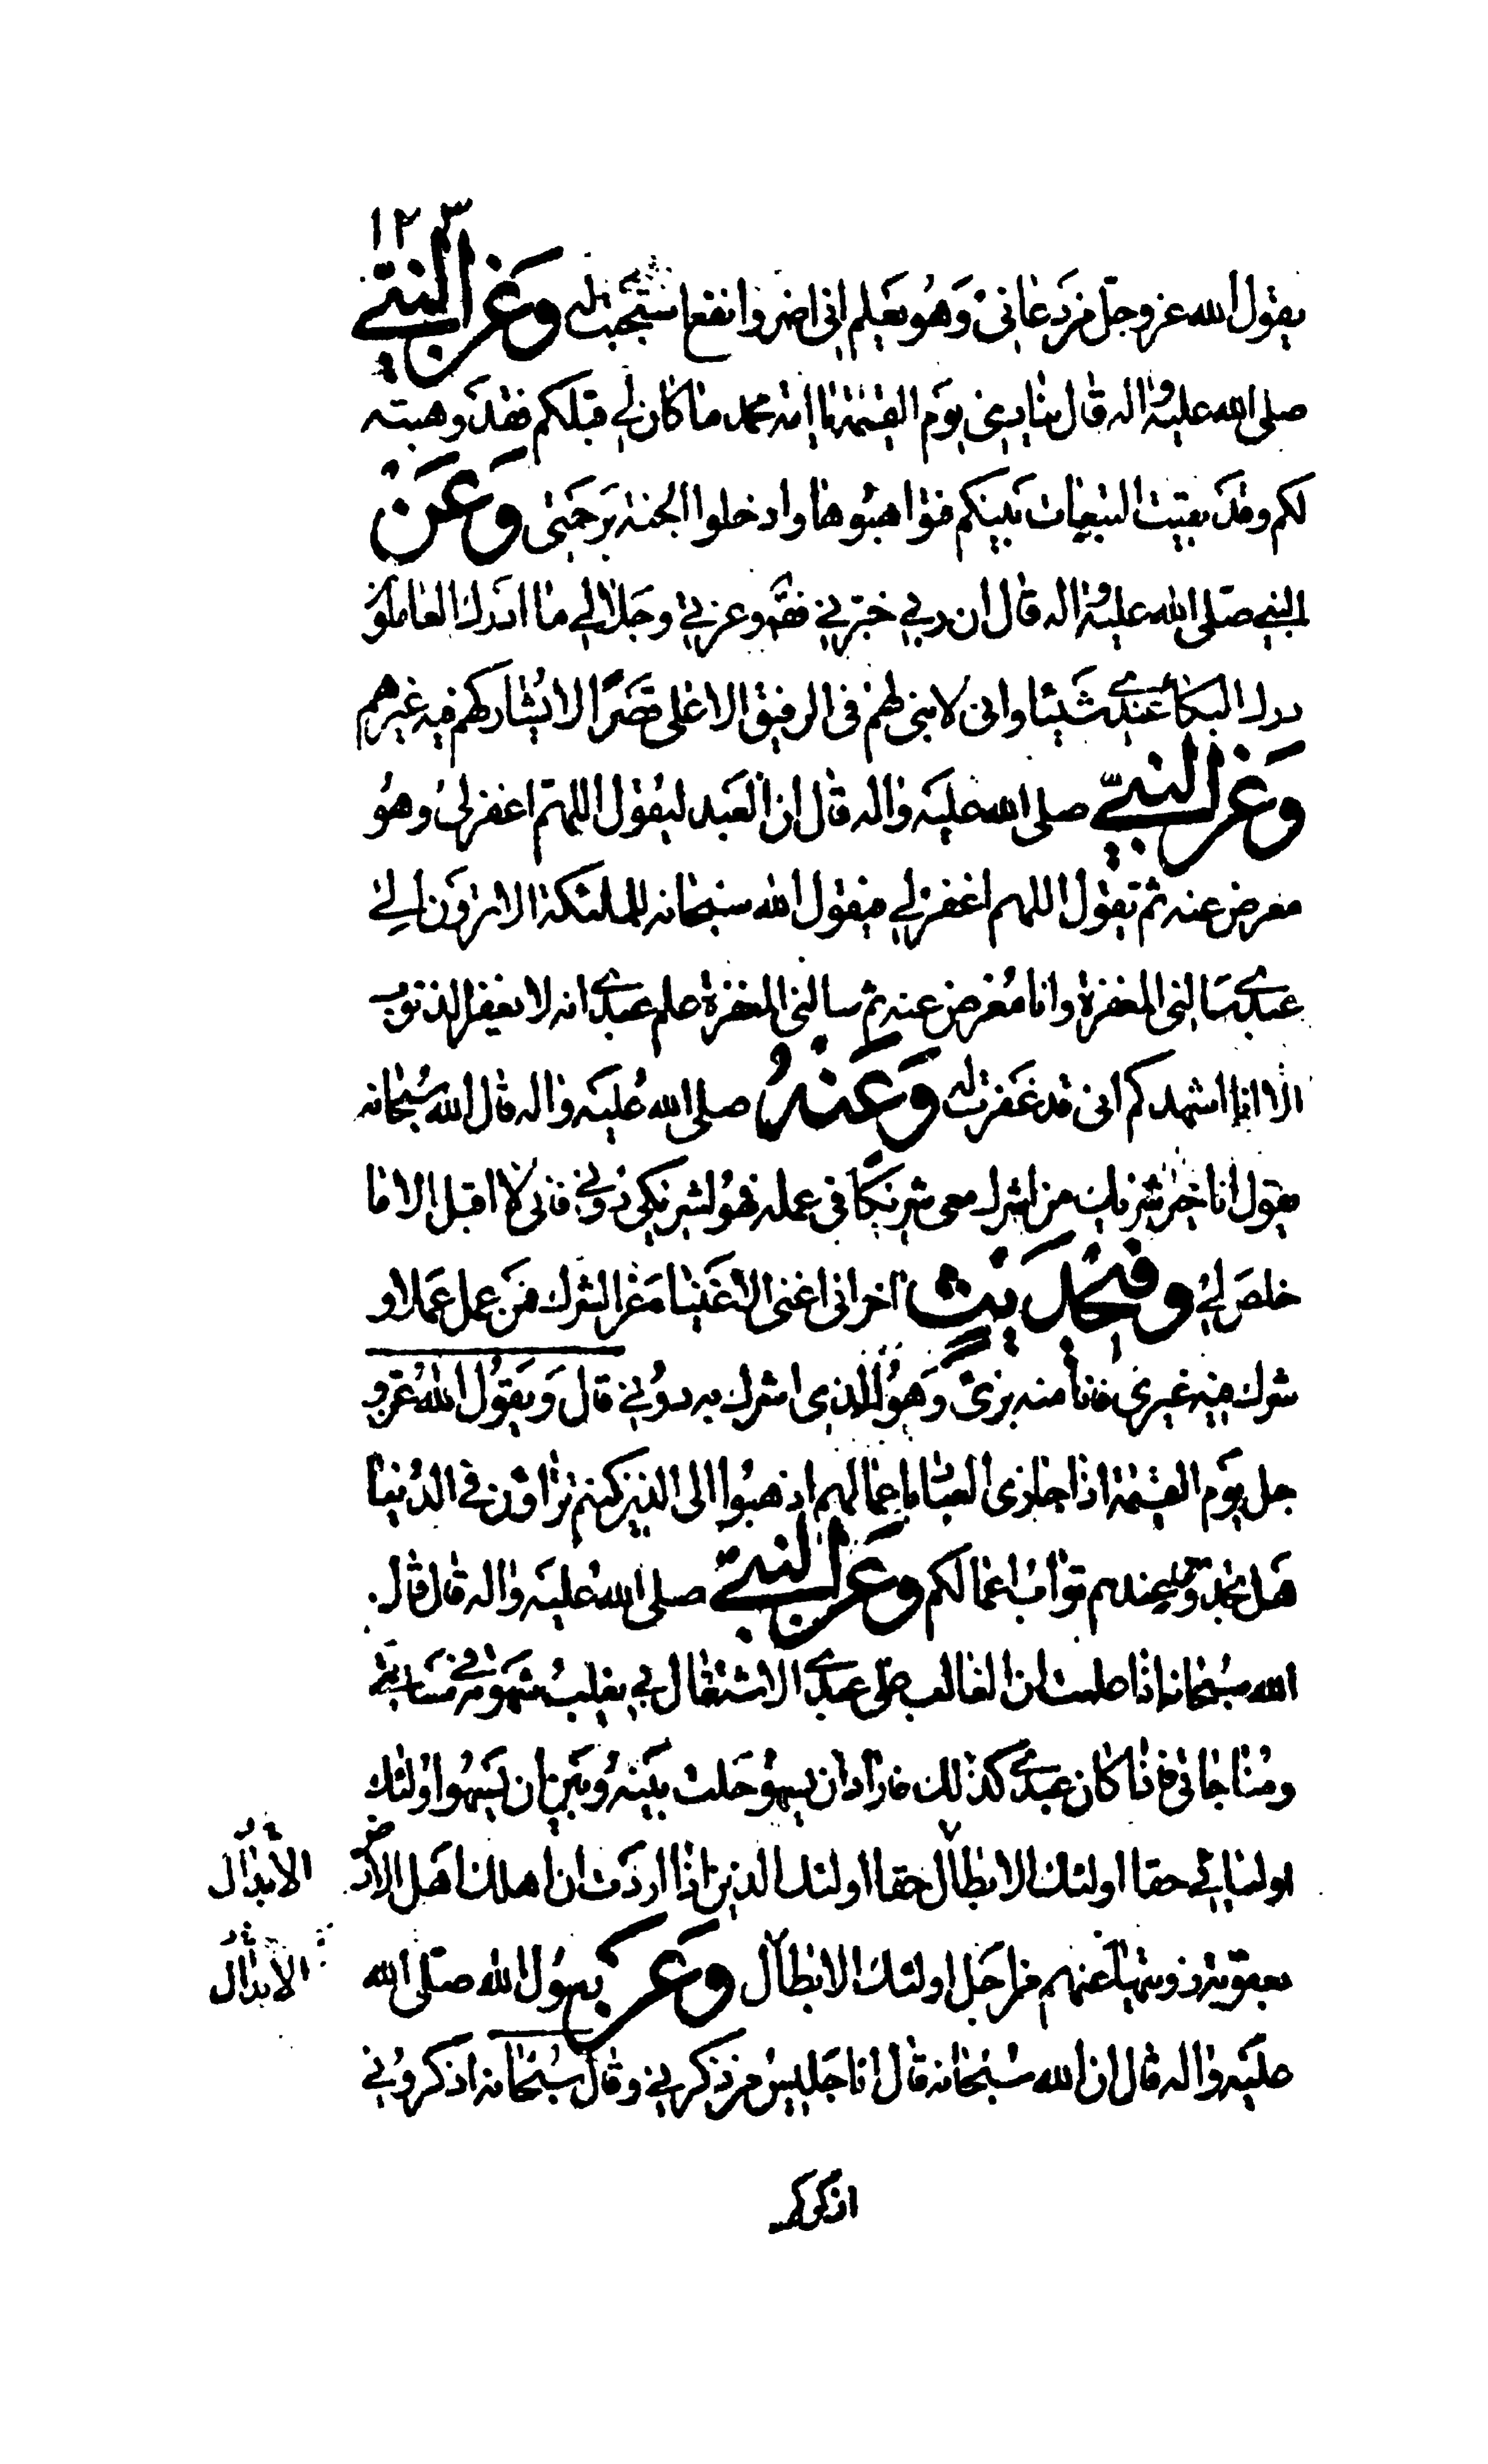 ١٢٣
يقول الله عز وجل من دعاني وهو يعلم اني اضر وانفع استجبت له وعن النبي
صلى الله عليه واله قال ينادي يوم القيمة يا امة محمد ما كان لي قبلكم فقد وهبته
لكم وقد بقيت التبعات بينكم فتواهبوها وادخلوا الجنة برحمتي وعن
النبي صلى الله عليه واله قال ان ربي خبرني فقال وعزتي وجلالي ما ادرك العاملون
درك البكاء عندي شيئا واني لابني لهم في الرفيق الاعلى قصرا لا يشاركهم فيه غيرهم
وعن النبي صلى الله عليه واله قال ان العبد ليقول اللهم اغفر لي وهو
معرض عنه ثم يقول اللهم اغفر لي فيقول الله سبحانه للملئكة الا ترون الى
عبدي سالني المغفرة وانا معرض عنه ثم سالني المغفرة علم عبدي انه لا يغفر الذنوب
الا انا اشهدكم اني قد غفرت له وعنه صلى الله عليه واله قال الله سبحانه
يقول انا خير شريك من اشرك معي شريكا في عمله فهو لشريكي دوني فاني لا اقبل الا ما
خلص لي وفي حديث اخر اني اغنى الاغنيا عن الشرك فمن عمل عملا و
شرك فيه غيري فانا منه برئ وهو للذي اشرك به دوني قال ويقول الله عز و
جل يوم القيمة اذا جازى العباد باعمالهم اذهبوا الى الذين كنتم تراؤن في الدنيا
هل تجدون عندهم ثواب اعمالكم وعن النبي صلى الله عليه واله قال قال
الله سبحانه اذا علمت ان الغالب على عبدي الاشتغال بي نقلت شهوته في مسالتي
ومناجاتي فاذا كان عبدي كذلك فاراد ان يسهو حلت بينه وبين ان يسهو اولئك
اوليائي حقا اولئك الابطال حقا اولئك الذين اذا اردت ان اهلك اهل الارض الابدال
بعقوبة زويتها عنهم من اجل اولئك الابطال وعن رسول الله صلى الله الابدال
عليه واله قال ان الله سبحانه قال انا جليس من ذكرني وقال سبحانه اذكروني
اذكركم